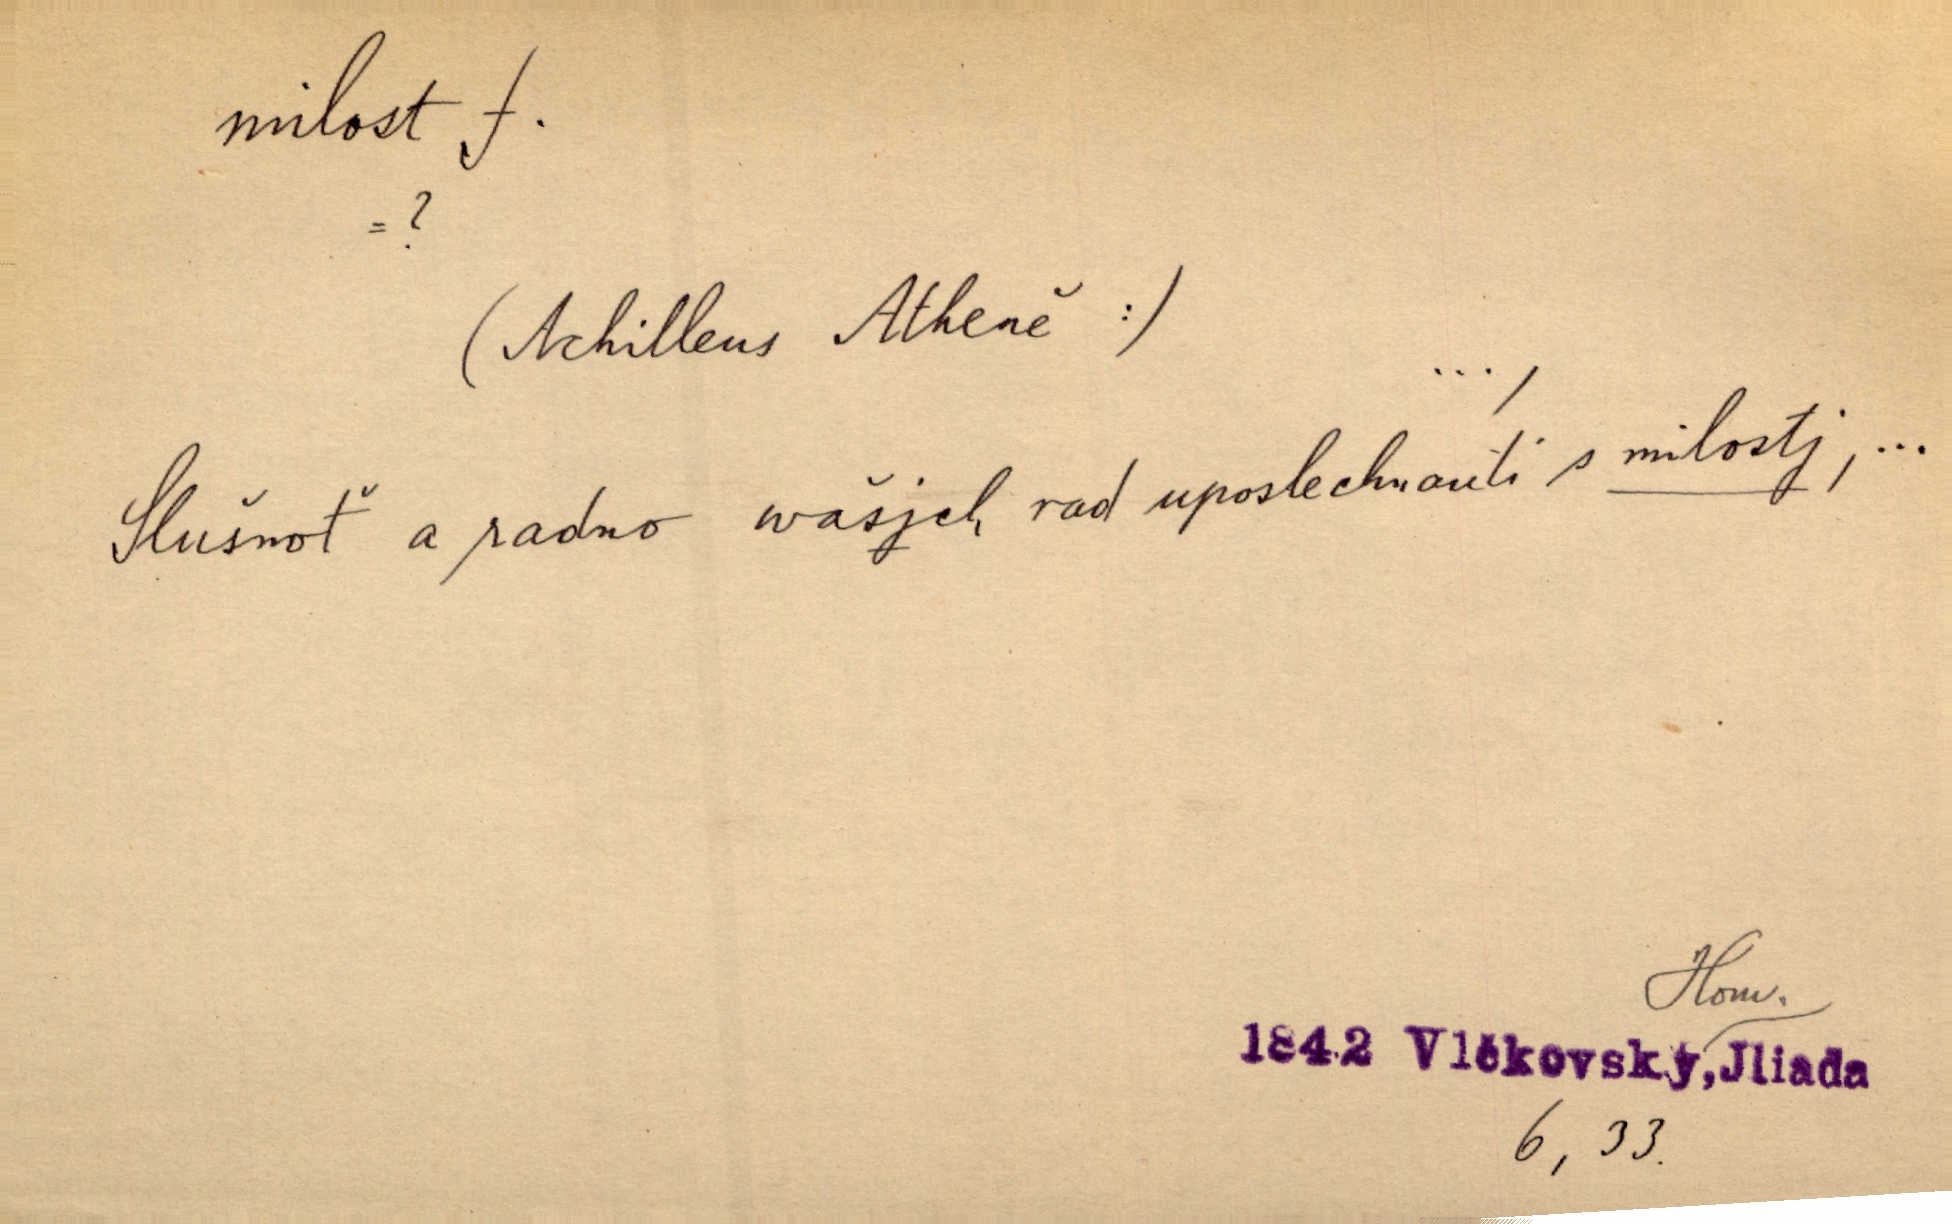 milost f.
= ?
(Achilleus Atheně :)
... /
Slušnoť a radno wašjch rad uposlechnauti s milostj, ...
Hom.
1842 Vlčkovský, Jliada
6, 33.